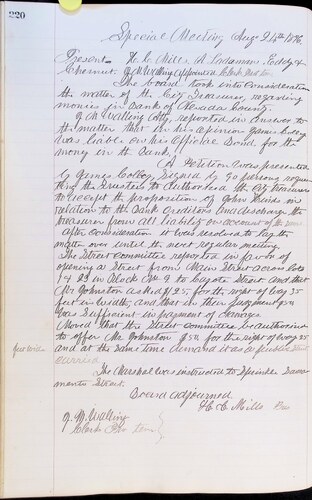 220
Special Meeting Aug 24th 1876
Present H. C. Mills, A. Eddy &
G M Walling Appointed Clerk Pro tem
The Board took into consideration
the matter of the City Treasurer, regarding
monies in Bank of Nevada County.
G M Walling Atty, reported in answer to
the matter that in his opinion James Colley
was liable on his Official Bond for the
money in the Bank.
A Petition was presented
by James Colley, signed by 90 persons reques
ting the Trustees to Authorized the City Treasurer
to accept the proposition of John in
relation to the Bank Creditors and discharge the
treasurer from all liability on account of the same
After consideration it was resolved to lay the
matter over until the next regular meeting.
The Street Committee reported in favor of
opening a Street from Main Street across lots
& 23 in Block to Street and that
Mr Johnston asked $25 for the right of way 25
feet in width, and that in their judgment $5
was sufficient in payment of damage
Moved That the Street Committee be authorized
to offer Mr Johnston $5 for the right of way 25
feet wide
and at the same time demand it as a public street
Carried
The Marshal was instructed to Sprinkle Sacra
mento Street.
Board adjourned
H. C. Mills Pres
G. M. Walling
Clerk Pro tem